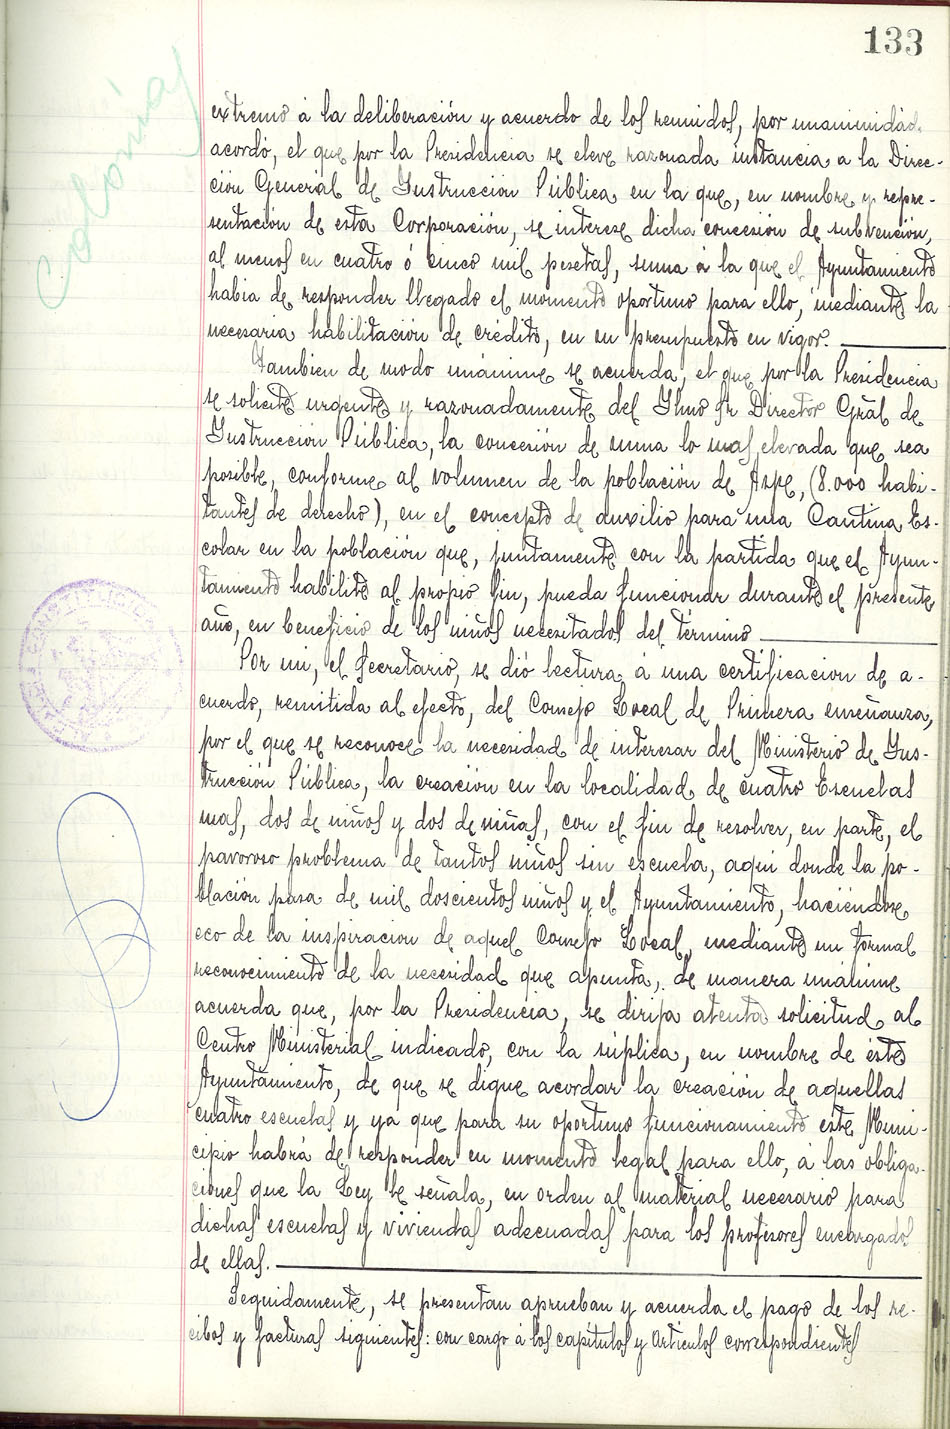 133
Colonias
extremo á la deliberación y acuerdo de los reunidos, por unanimidad,
acordó, el que por la Presidencia se eleve razonada instancia a la Direc-
ción General de Instrucción Pública, en la que, en nombre y repre-
sentación de esta Corporación, se interese dicha concesión de subvención,
al menos en cuatro ó cinco mil pesetas, suma á la que el Ayuntamiento
habia de responder llegado el momento oportuno para ello, mediante la
necesaria habilitación de crédito, en su presupuesto en vigor.
Tambien de modo unánime se acuerda, el que por la Presidencia
se solicite urgente y razonadamente del Ilmo Sr Director Gral de
Instrucción Pública, la concesión de suma lo mas elevada que sea
posible, conforme al volumen de la población de Aspe, (8.000 habi-
tantes de derecho), en el concepto de auxilio para una Cantina Es-
colar en la población que, juntamente con la partida que el Ayun-
tamiento habilite al propio fin, pueda funcionar durante el presente
año, en beneficio de los niños necesitados del término
Por mi, el Secretario, se dió lectura á una certificacion de a-
cuerdo, remitida al efecto, del Consejo Local de Primera enseñanza,
por el que se reconoce la necesidad de interesar del Ministerio de Ins-
trucción Pública, la creación en la localidad de cuatro Escuelas
mas, dos de niños y dos de niñas, con el fin de resolver, en parte, el
pavoroso problema de tantos niños sin escuela, aqui donde la po-
blación pasa de mil doscientos niños y el Ayuntamiento, haciéndose
eco de la inspiracion de aquel Consejo Local, mediante un formal
reconocimiento de la necesidad que apunta, de manera unánime
acuerda que, por la Presidencia, se dirija atenta solicitud al
Centro Ministerial indicado, con la súplica, en nombre de éste
Ayuntamiento, de que se digne acordar la creación de aquellas
cuatro escuelas y ya que para su oportuno funcionamiento este Muni-
cipio habrá de responder en momento legal para ello, á las obliga-
ciones que la Ley le señala, en orden al material necesario para
dichas escuelas y viviendas adecuadas para los profesores encargados
de ellas.
Seguidamente, se presentan aprueban y acuerda el pago de los re-
cibos y facturas siguientes: con cargo á los capitulos y articulos correspondientes